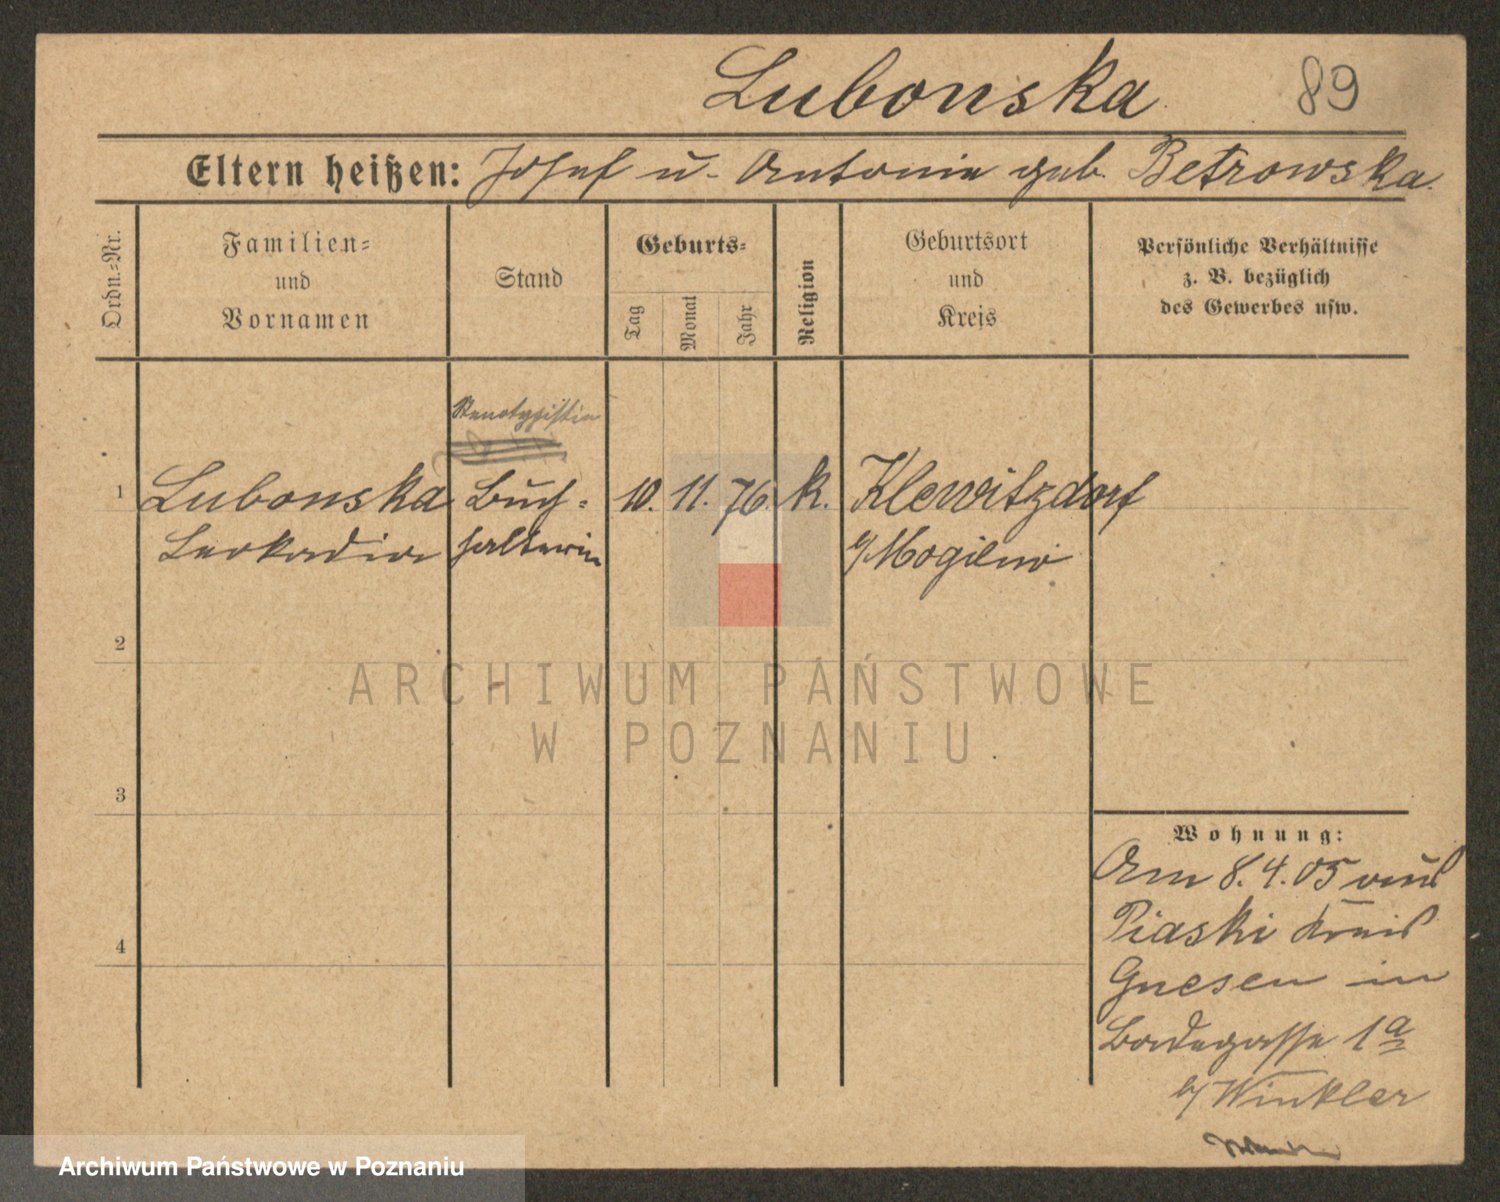 Lubonska 89
Eltern heißen: Josef u. Antonie geb. Betrowska.
Ordn.-Nr.
Familien-
und
Vornamen
Stand
Geburts-
Tag
Monat
Jahr
Religion
Geburtsort
und
Kreis
Persönliche Verhältnisse
z. B. bezüglich
des Gewerbes usw.
Stenotypistin
1 Lubonska Buch- 10. 11. 76. k. Klewitzdorf
Leokadia halterin b/Mogilno
2
ARCHIWUM PAŃSTWOWE
W POZNANIU
3
Wohnung:
Am 8.4.05 aus
Piaski Kreis
4
Gnesen in
Badegasse 1a
b/ Winkler
Archiwum Państwowe w Poznaniu